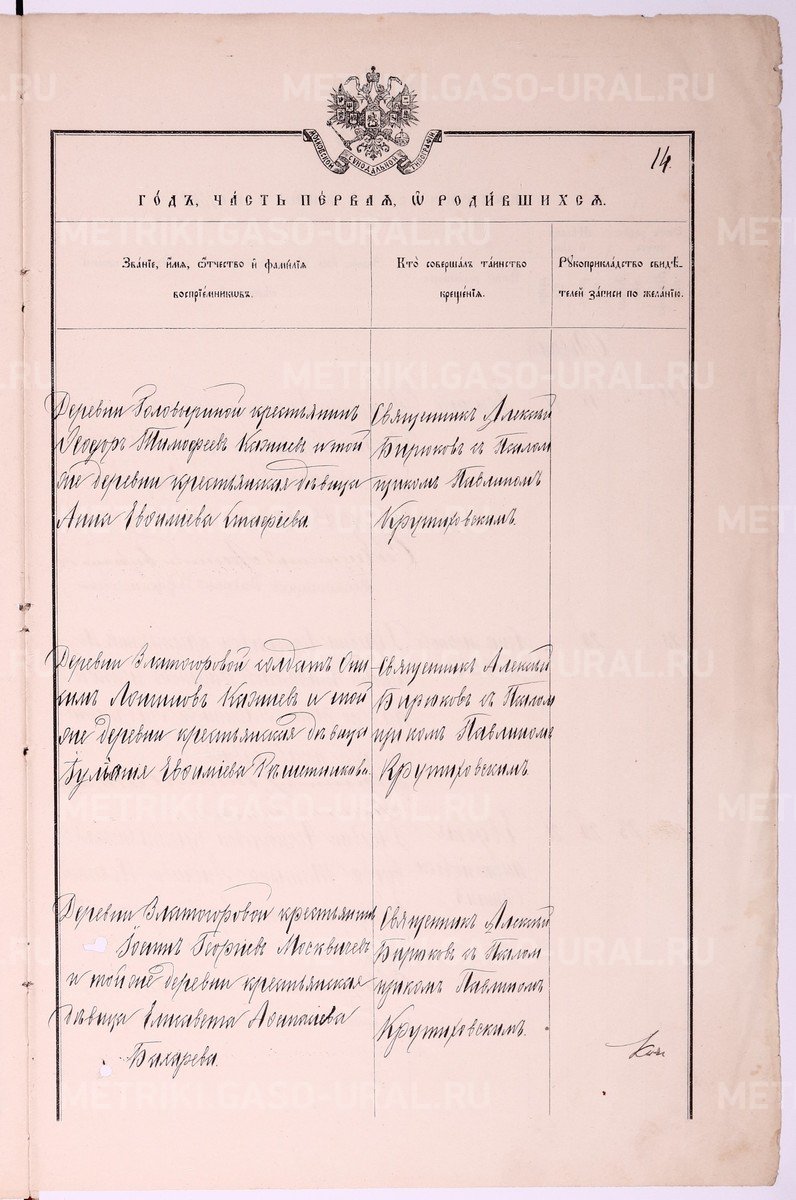 METRIKI.GASO-URAL.RU
МОСКОВСКОЙ СУНОДАЛЬНОЙ ТИПОГРАФІИ
14
ГО́ДЪ, ЧА́СТЬ ПЕ́РВАЯ, Ѡ҆ РОДИ́ВШИХСЯ.
Зва́ніе, и҆́мя, ѻ҆́тчество и҆ фами́лія
воспріе́мникѡвъ.
Кто̀ соверша́лъ та́инство
креще́нія.
Рꙋкоприкла́дство свидѣ́-
телей за́писи по жела́нію.
Деревни Головыриной крестьянинъ
Ѳеодоръ Тимофеевъ и той
же деревни крестьянская дѣвица
Анна Евѳиміева
Священникъ Алексій
Бирюковъ съ Псалом
щикомъ Павлиномъ
Крутиховскимъ.
Деревни Златогоровой солдатъ Они-
симъ Логиновъ и той
же деревни крестьянская дѣвица
Іуліанія Евѳиміева Рѣшетникова.
Священникъ Алексій
Бирюковъ съ Псалом
щикомъ Павлиномъ
Крутиховскимъ.
Деревни Златогоровой крестьянинъ
Іоаннъ Георгіевъ
и той же деревни крестьянская
дѣвица Елисавета
Священникъ Алексій
Бирюковъ съ Псалом
щикомъ Павлиномъ
Крутиховскимъ.